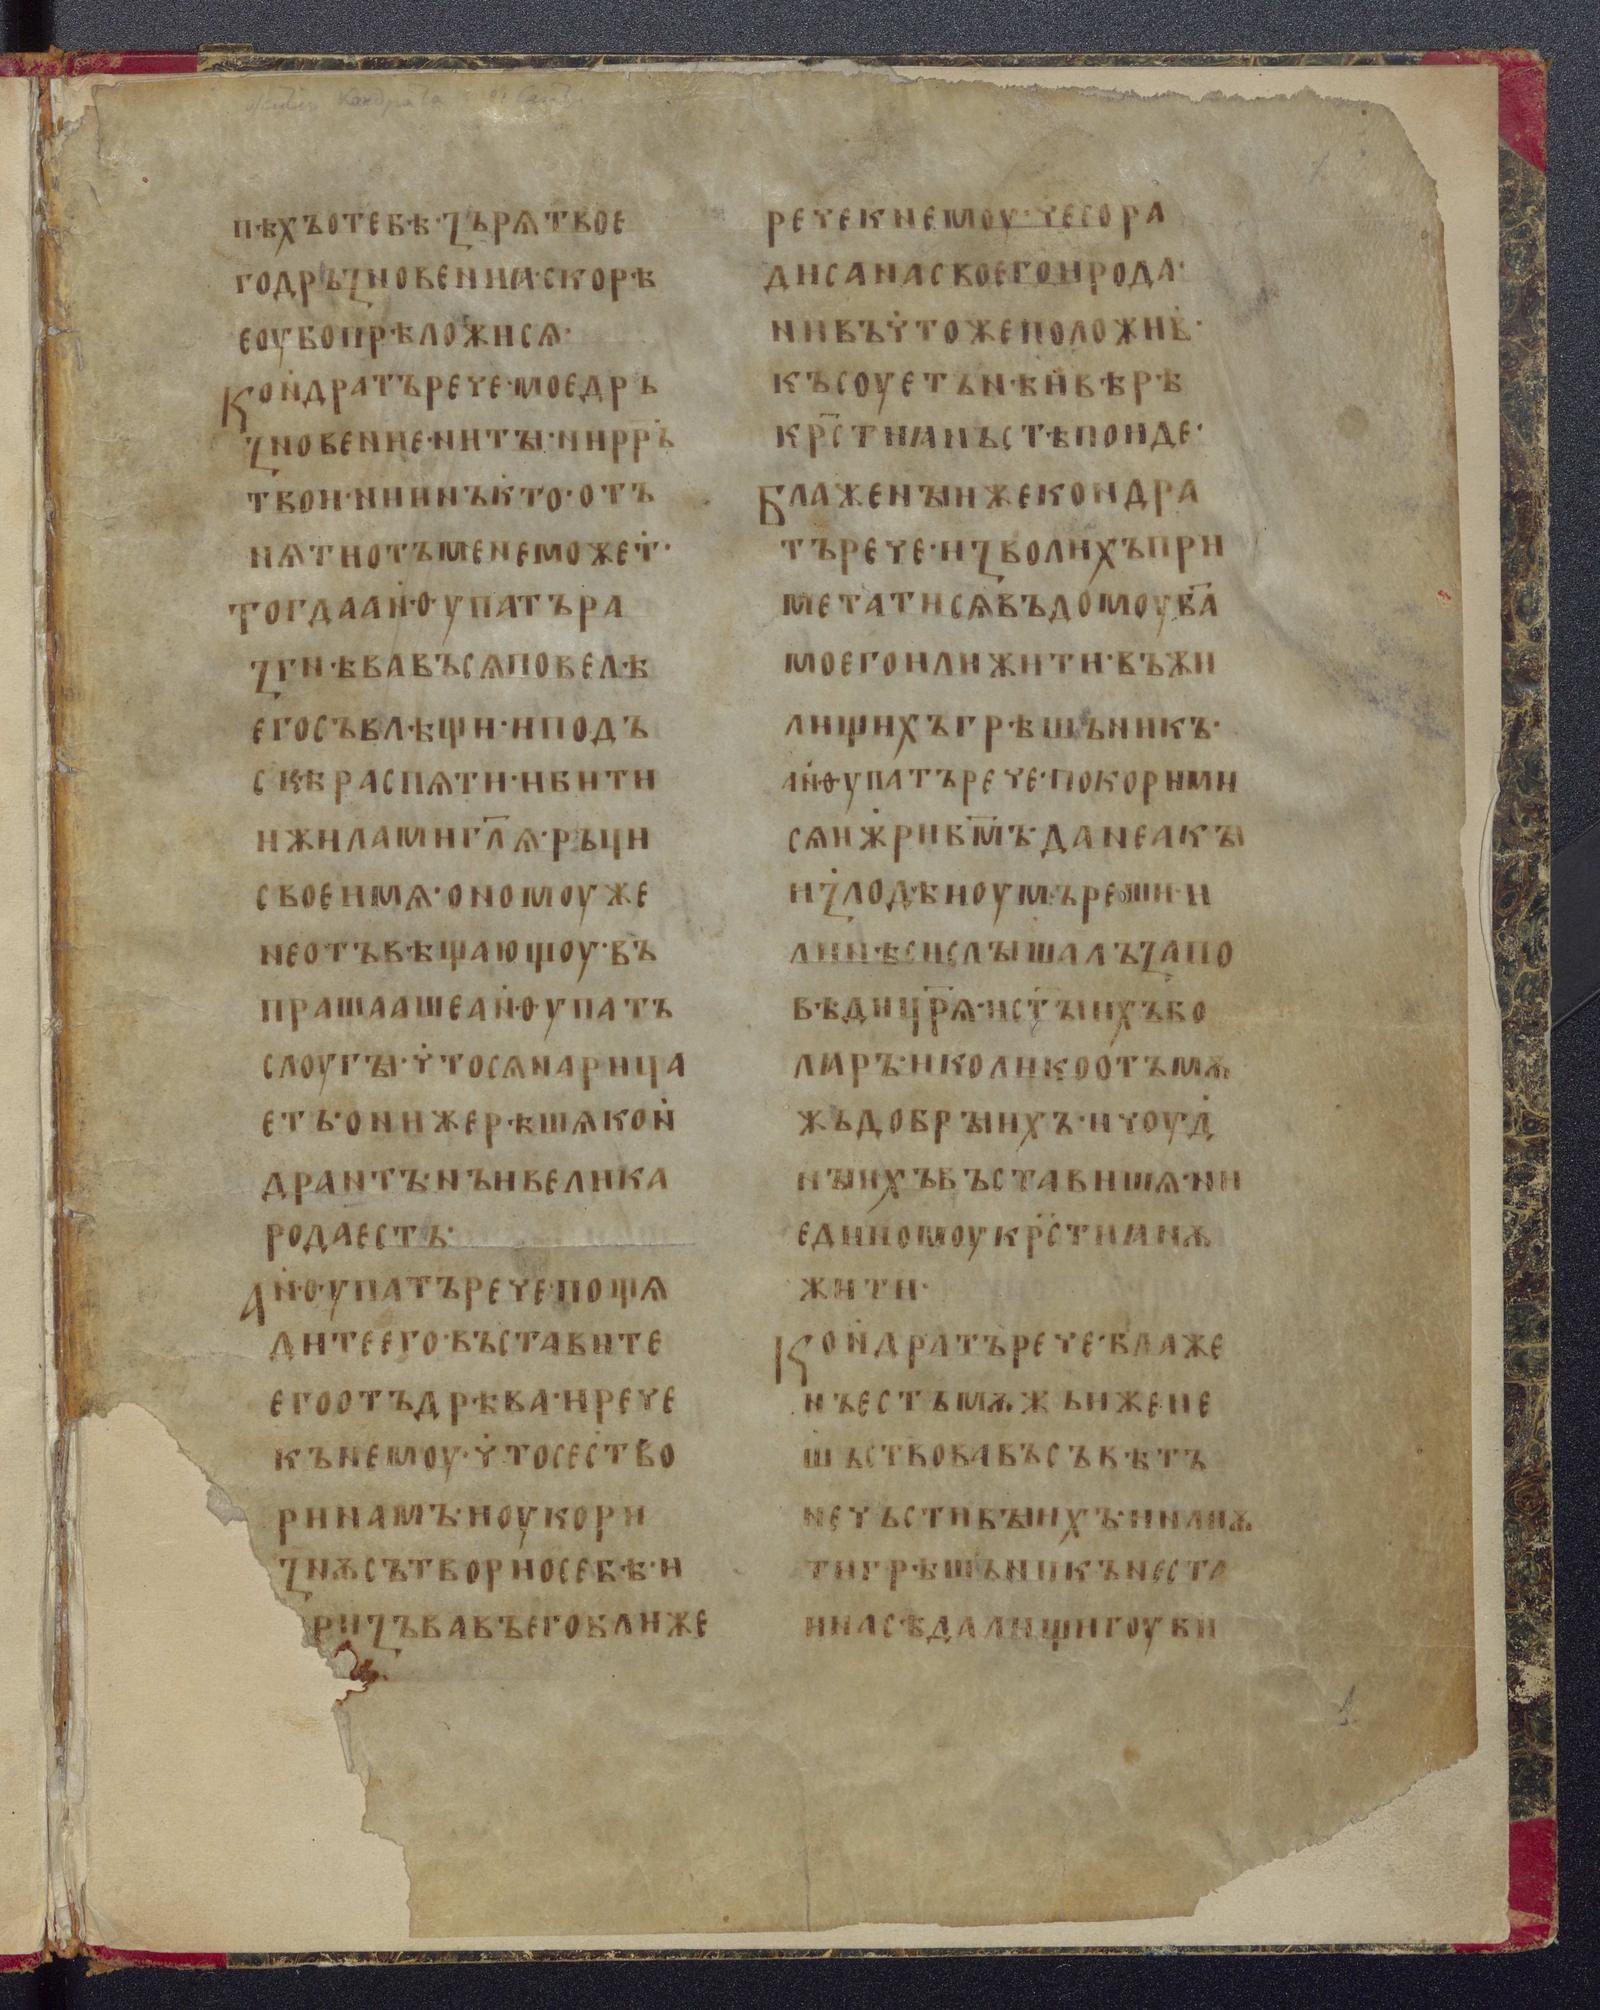 пѣхъотебѣ·ꙁърѧтвое
годръꙁновениꙗ·скорѣ
еоубопрѣложисѧ·
Кон̇дратърече·моедрь
ꙁновение·ниты·нирр҃ъ
твои·ниинък̇то·отъ
нѧтиотъменеможет̇·
Тогдаан̇ѳупатъра
ꙁгнѣвавъсѧповелѣ
егосъвлѣщи·иподъ
скѣраспѧти·ибити
ижиламигл҃ѧ·ръци
своеимѧ·ономоуже
неотъвѣщающоу·въ
прашаашеан̇ѳупатъ
слоугы·ч̇тосѧнарица
етъ·онижерѣшѧкон̇
дрантъ·нъивелика
родаестъ·
Ан̇ѳупатърече·пощѧ
дитеего·въставите
егоотъдрѣва·ирече
кънемоу·ч̇тосест̇во
ринамъ·иоукори
ꙁнѫсътвориосебѣ·и
приꙁъвавъегоближе
речекнемоу·чесора
дисанасвоегоирода·
нивъч̇тожеположив̇·
късоуетьнѣйвѣрѣ
кр҃стиꙗньстѣпоиде·
Блаженыижекондра
търече·иꙁволихъпри
метатисѧвъдомоуб҃а
моегоилижити·въжи
лищихъгрѣшьникъ·
ан̇ѳупатърече·покорими
сѧиж̇рибм҃ъ·данеакы
иꙁ̇лодѣиоумьреши·и
лин̇ѣсислышалъꙁапо
вѣдицр҃ѧ·ист҃ыихъбо
лꙗръ·иколикоотъмѫ
жьдобрыихъ·ичоуд̇
ныихъвъставишѧ·ни
единомоукр҃стиꙗнѫ
жити·
Кон̇дратърече·блаже
нъестьмѫжьиженe
шьствовавъсъвѣтъ
нечьстивыихъ·нинапѫ
тигрѣшьникънеста
нинасѣдалищигоуби